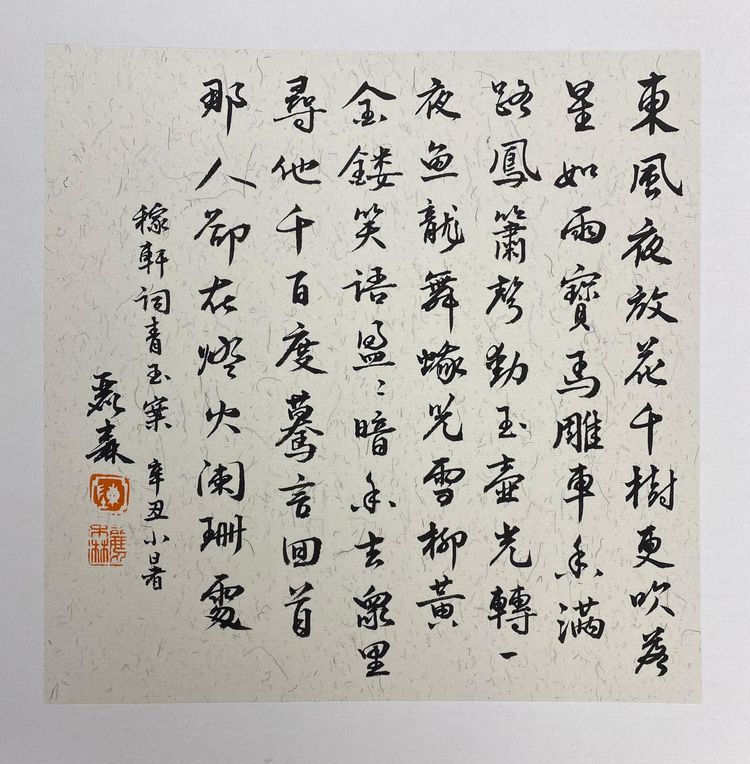 東風夜放花千樹更吹落
星如雨寶馬雕車香滿
路鳳簫聲動玉壺光轉一
夜魚龍舞蛾兒雪柳黃
金鏤笑語盈〻暗香去眾里
尋他千百度驀言回首
那人卻在燈火闌珊處
稼軒詞青玉案 辛丑小暑
聶森